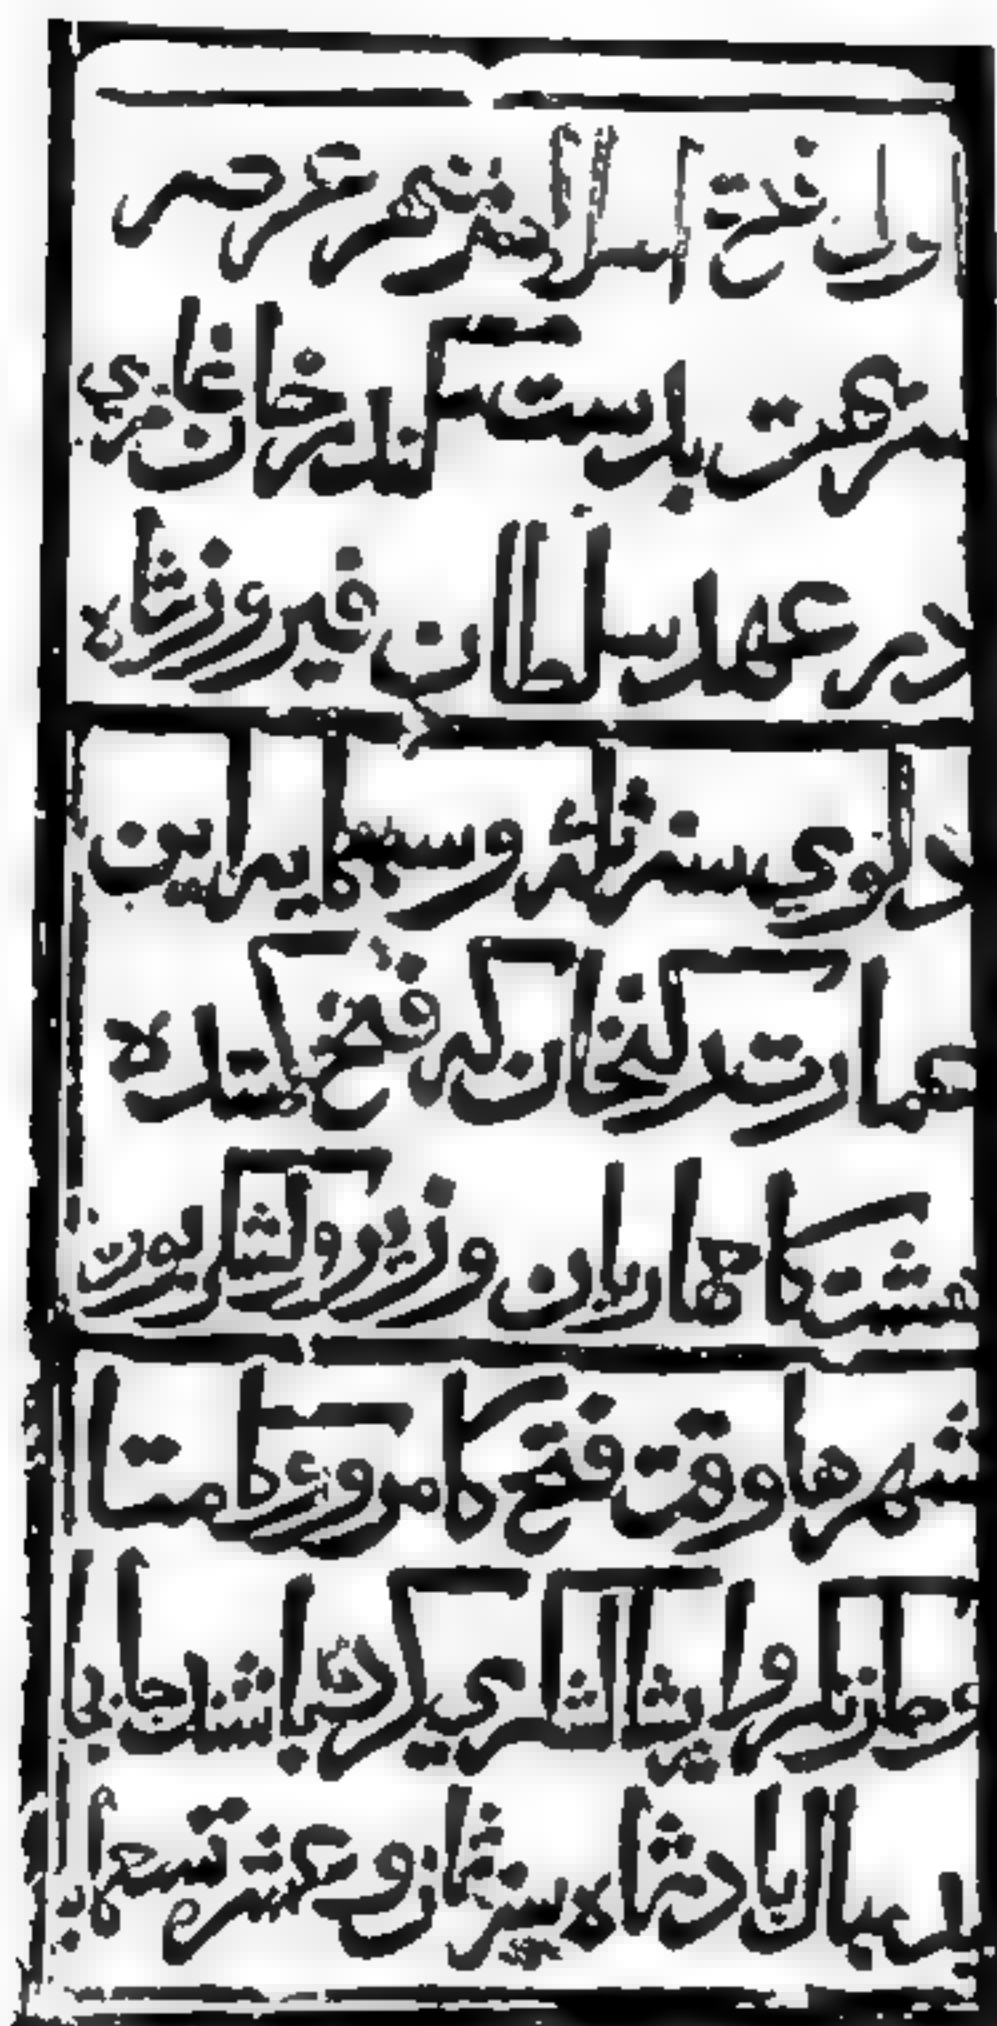 اول فتح اسلام شهر عرصه
سریهت بدست سکندر خان غازی
در عهد سلطان فیروز شاه
دلوی سنة ثلثه وسبعمایه این
عمارت رکنخان که فتح کننده
هشت کامهاریان وزیر و لشکر بوده
شهرها وقت فتح کامرو و کامتا
لشکری کرده باشند جابجا
بدنبال بادشاه سنة ثمان و عشر تسعمایه